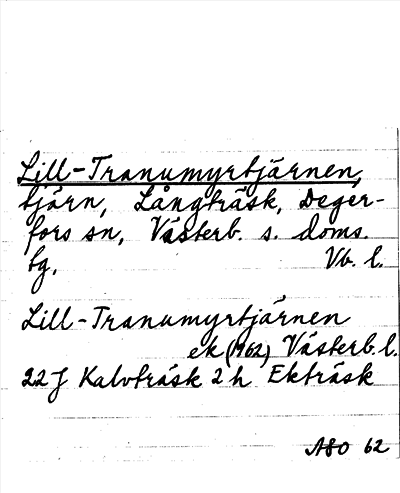 Lill-Tranumyrtjärnen,
tjärn, Långträsk, Deger-
fors sn, Västerb. s. doms.
tg. Vb. l.
Lill-Tranumyrtjärnen
ek (1962) Västerb. l.
22J Kalvträsk 2h Ekträsk
ASO 62